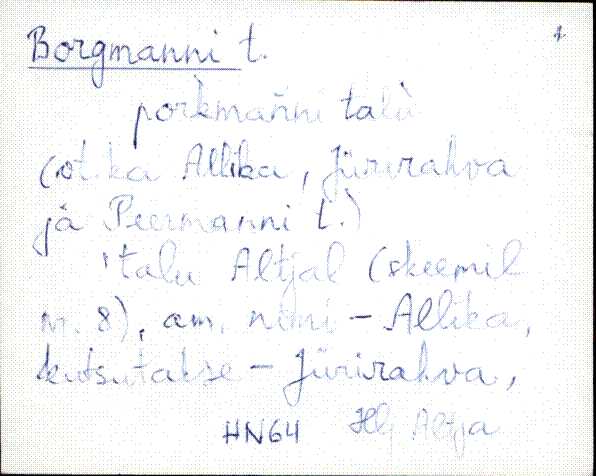 Borgmanni t.
porkmañni talù
(vt. ka Allika, Jürirahva
ja Peermanni t.)
'talu Altjal (skeemil
nr. 8), am. nimi - Allika,
kutsutakse - Jürirahva,
HN64 Hlj Altja